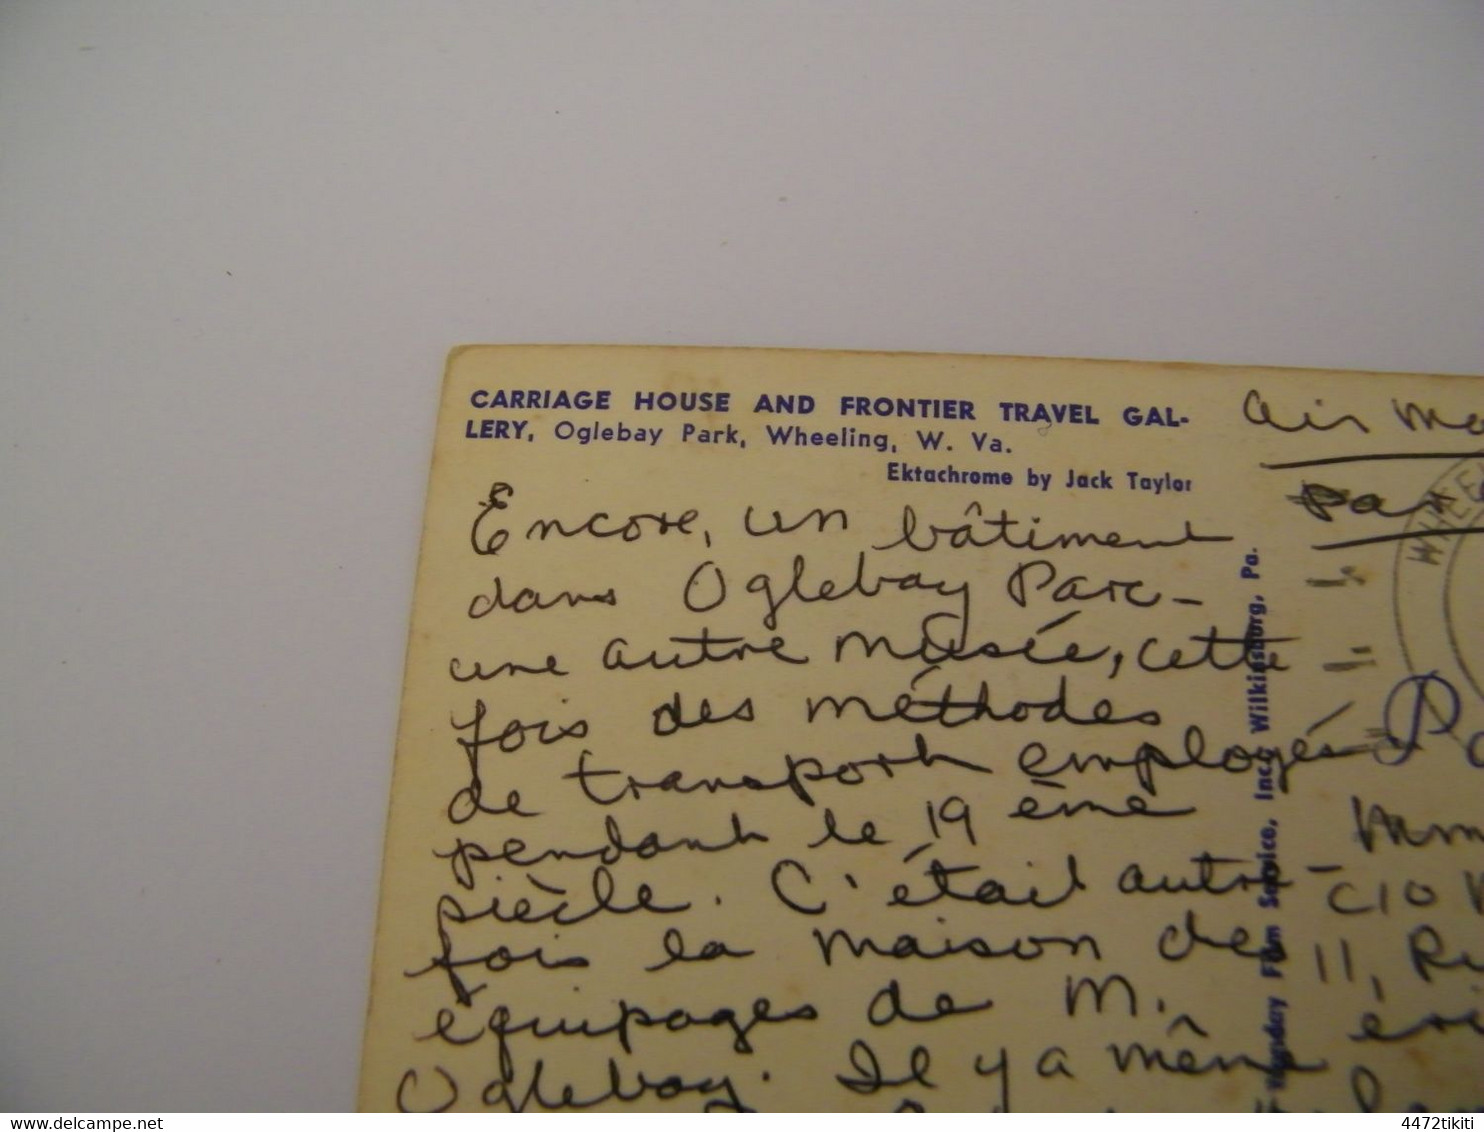 CARRIAGE HOUSE AND FRONTIER TRAVEL GAL-
LERY, Oglebay Park, Wheeling, W. Va.
Ektachrome by Jack Taylor
Encore, un bâtiment
dans Oglebay Parc -
une autre musée, cette
fois des méthodes
de transport employés
pendant le 19 ème
siècle. C'était autre
fois la maison de
équipages de M.
Oglebay. Il y a même
Air Ma
Par
WHEE
Film Service, Inc., Wilkinsburg, Pa.
Mm
C/O
11, Ru
delcampe.net
4472tikiti